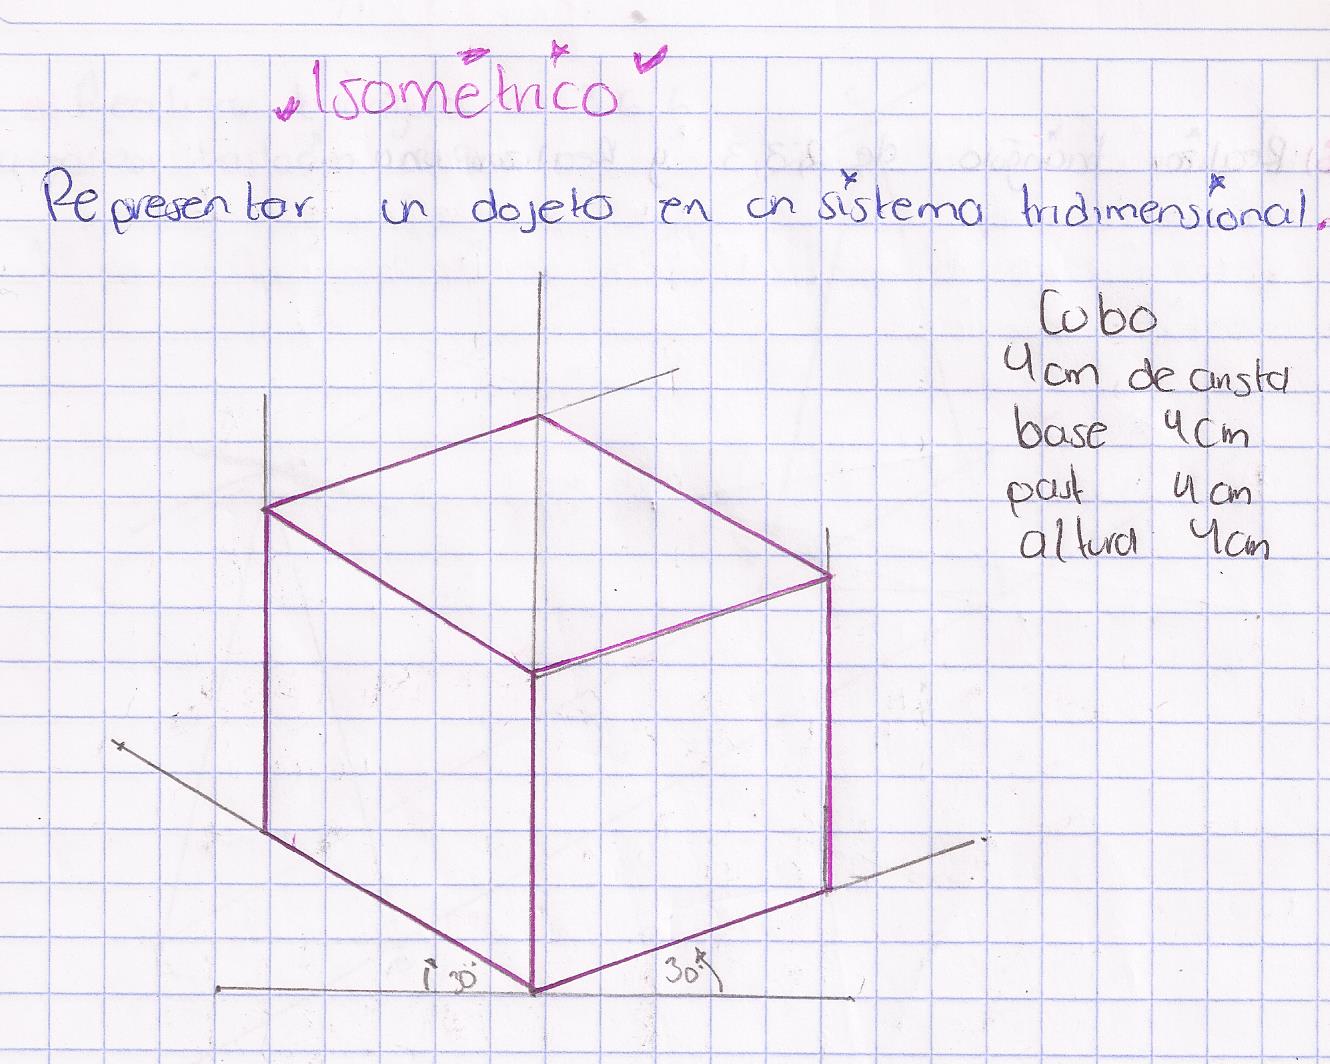 Isométrico
Representar un dojeto en un sistema tridimensional.
Cubo
4cm de arista
base 4cm
4cm
altura 4cm
30°
30°